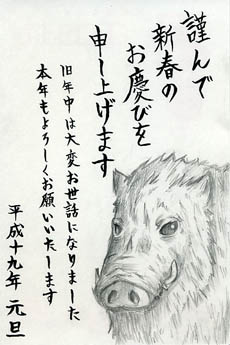 謹んで
新春の
お慶びを
申し上げます
旧年中は大変お世話になりました
本年もよろしくお願いいたします
平成十九年 元旦